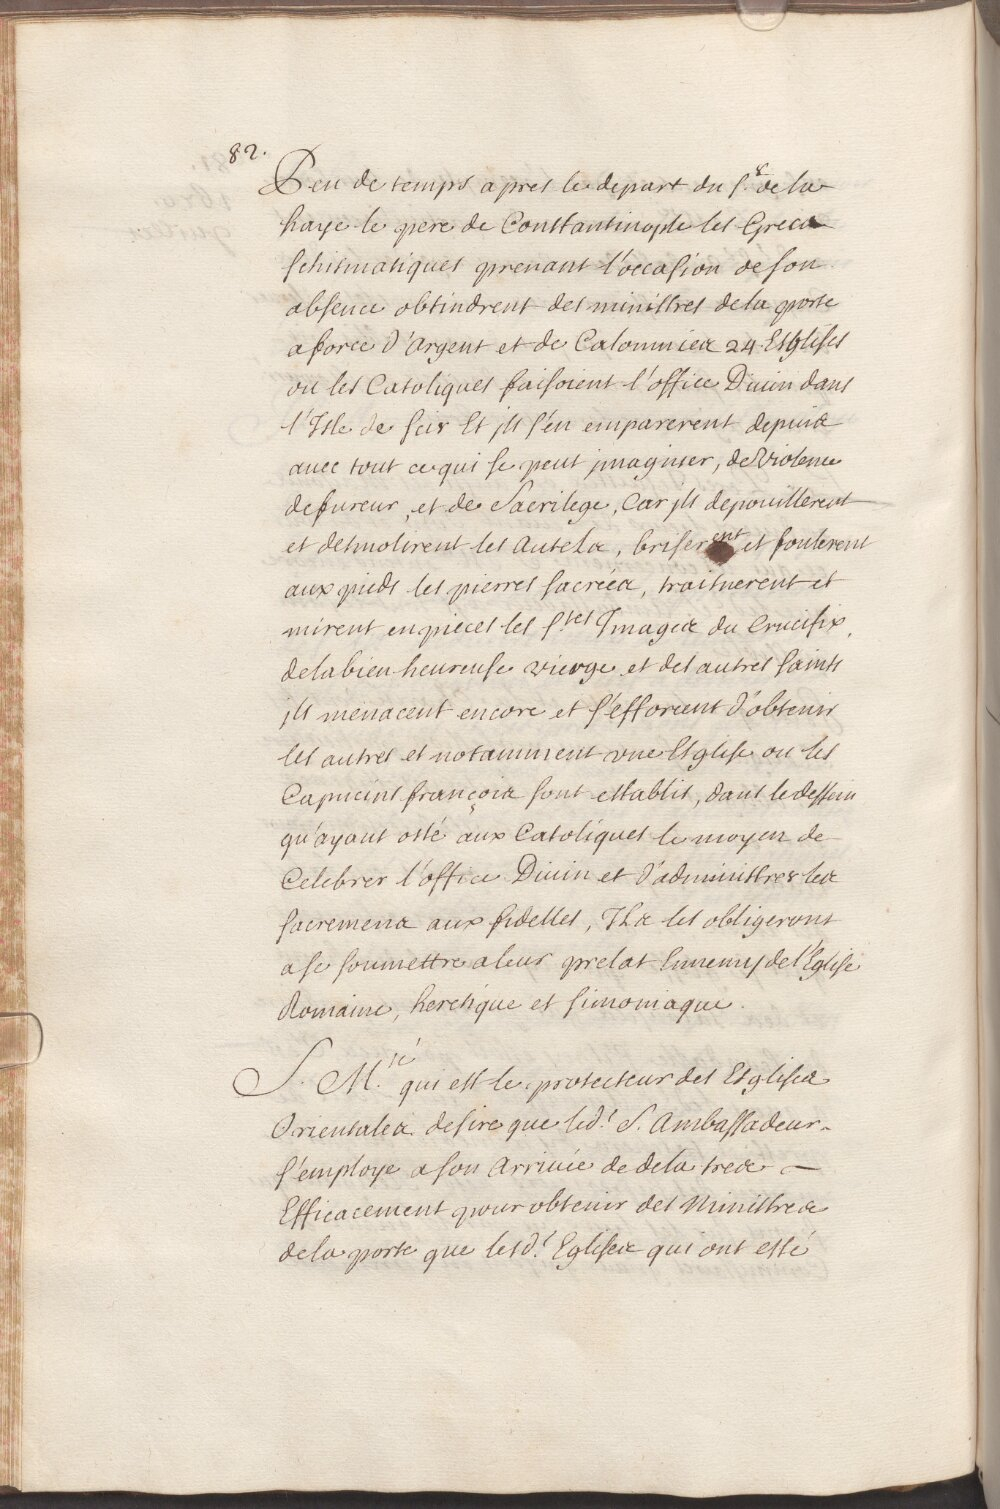 82.
Peu de temps apres le depart du S.r de la
haye le pere de Constantinople les Grecs
schismatiques prenant l'occasion de son
absence obtindrent des ministres de la porte
a force d'Argent et de Calomnies 24 Esglises
ou les Catoliques faisoient l'office Diuin dans
l'Isle de Scio Et jls s'en emparerent depuis
auec tout ce qui se peut jmaginer, de Violence
de fureur, et de Sacrilege, Car jls depouillerent
et desmolirent les Autels, briserent et foulerent
aux pieds les pierres sacrées, traisnerent et
mirent en pieces les S.tes Images du Crucifix,
de la bien heureuse vierge et des autres saints
jls menacent encore et s'efforcent d'obtenir
les autres et notamment vne Esglise ou les
Capucins françois sont establis, dans le dessein
qu'ayant osté aux Catoliques le moyen de
Celebrer l'office Diuin et d'administrer les
sacremens aux fidelles, Ils les obligeront
a se soumettre a leur prelat Ennemy de l'Eglise
Romaine, heretique et simoniaque.
S. M.té qui est le protecteur des Esglises
Orientales desire que led.t S. Ambassadeur
s'employe a son Arriuée de dela tres
Efficacement pour obtenir des Ministres
de la porte que lesd.t Eglises qui ont esté